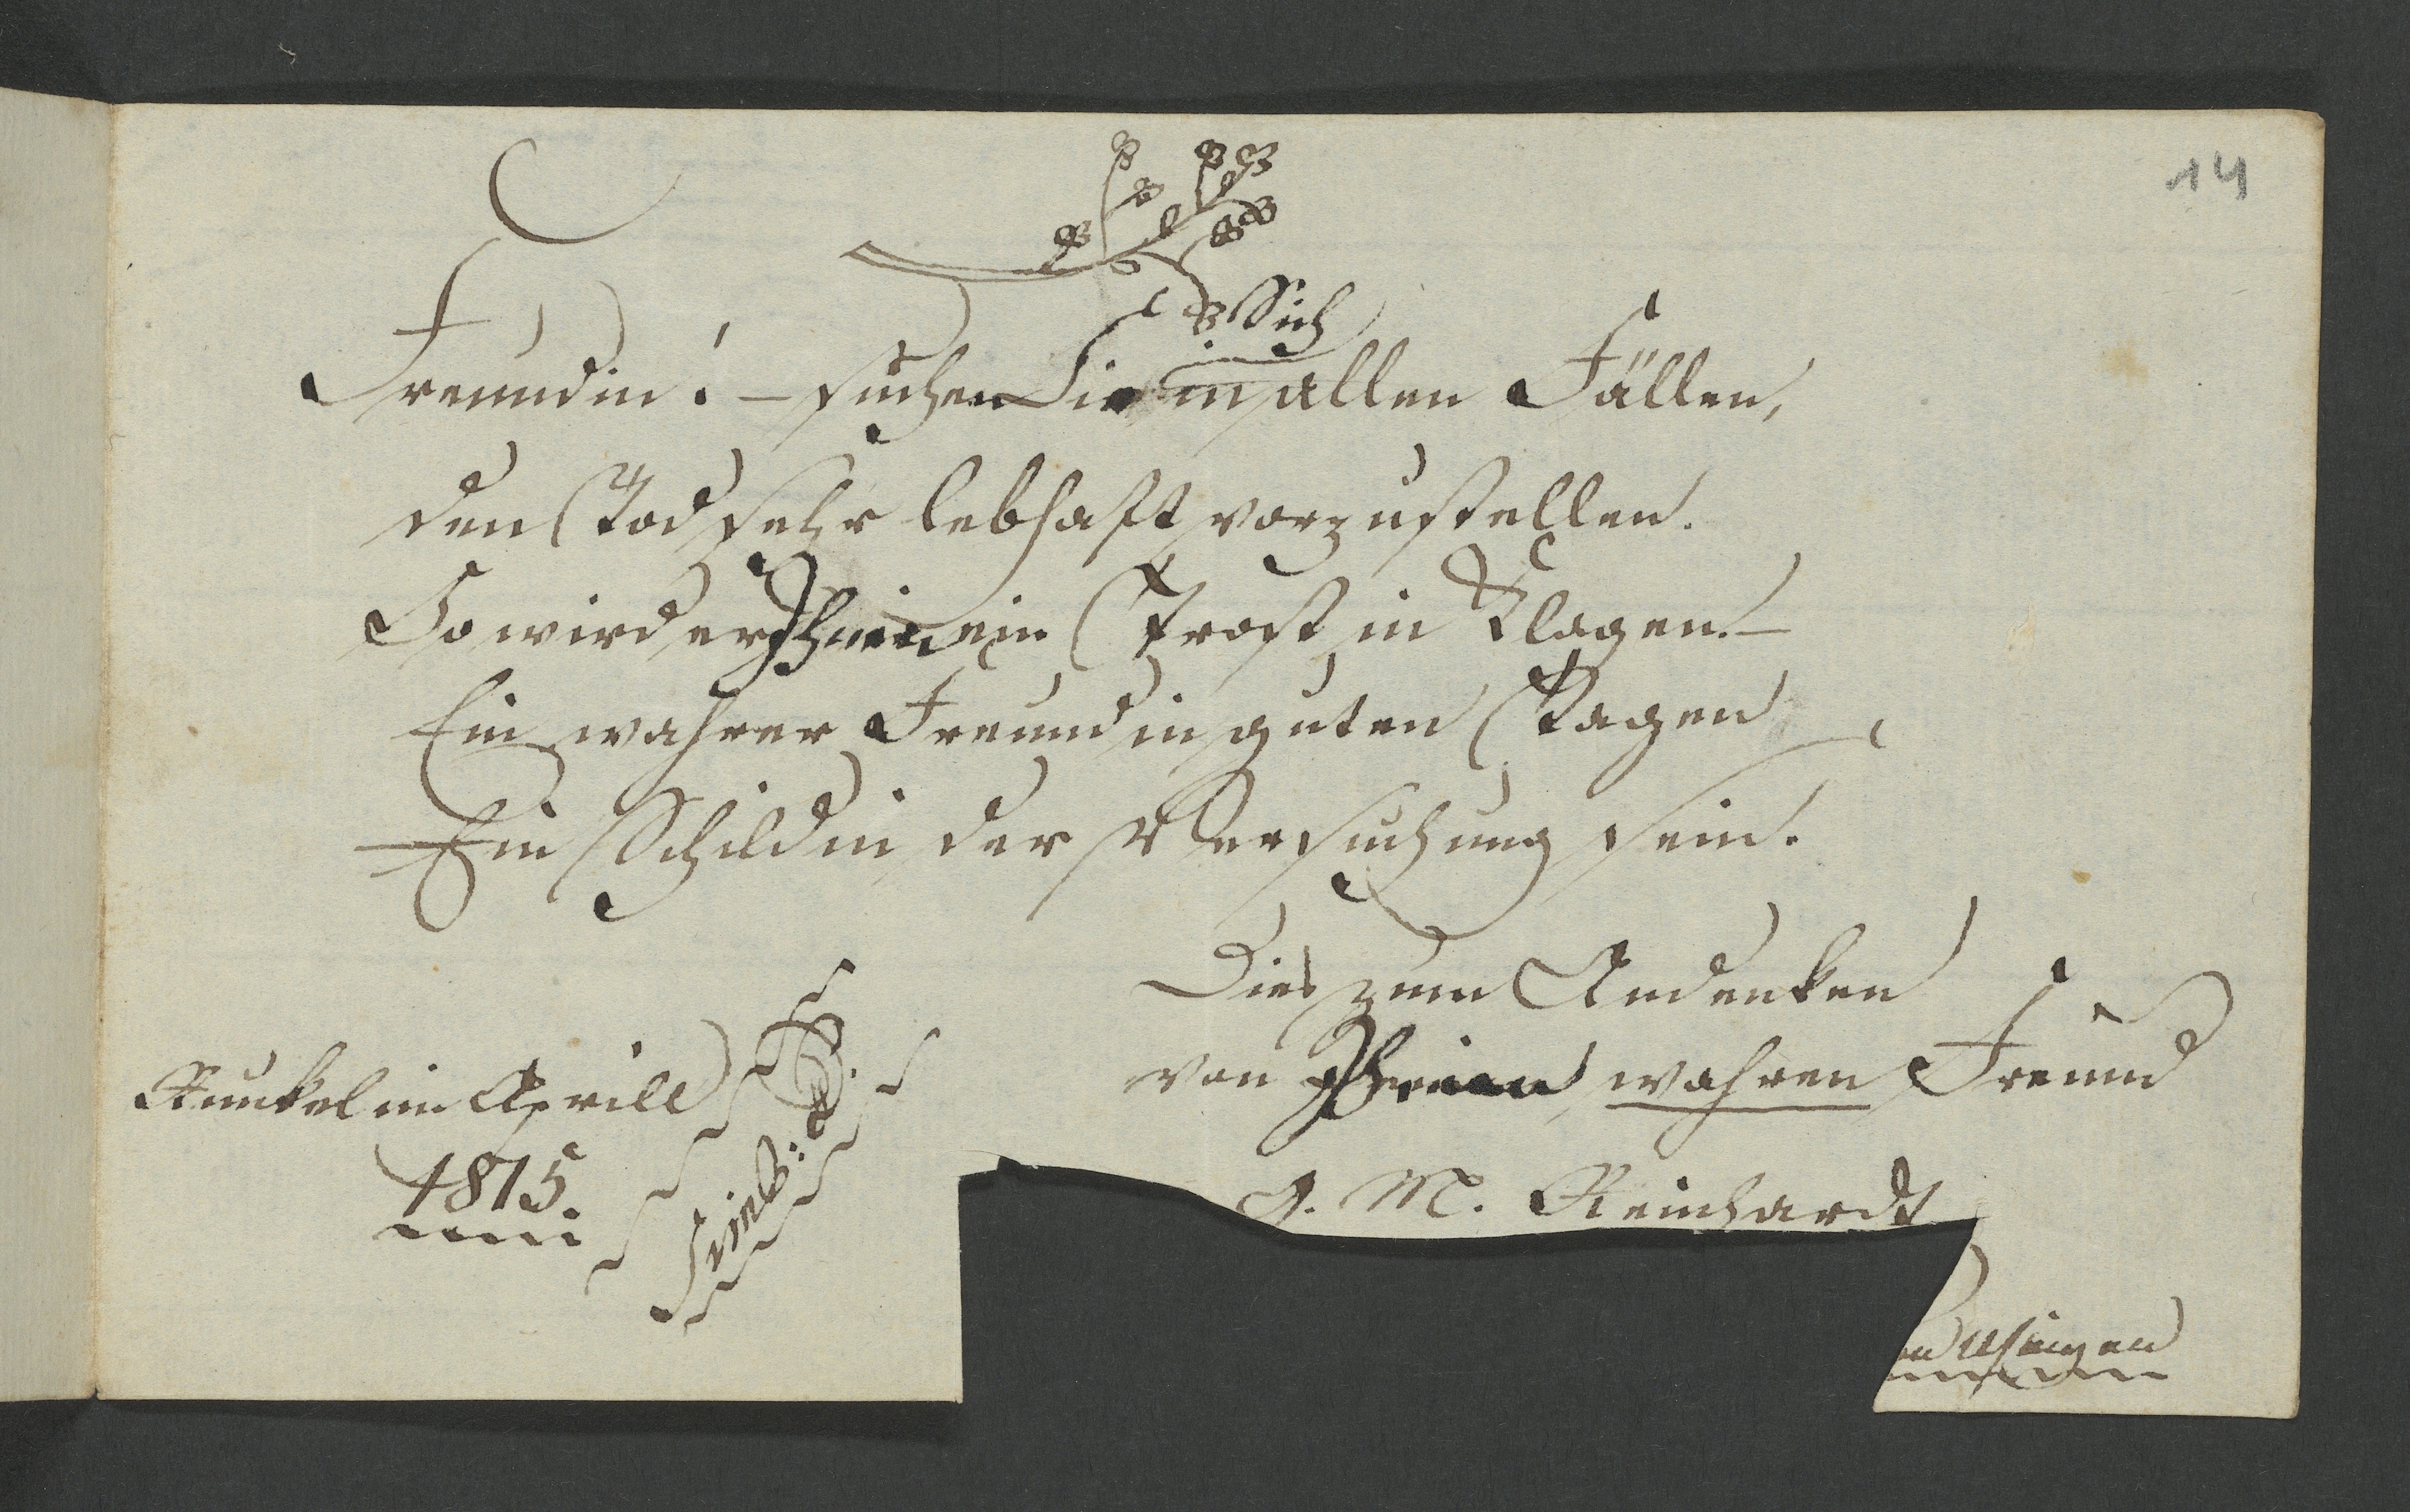 14
Sich
Freundin! – suchen Sie in allen Fällen,
den Tod sehr lebhaft vorzustellen.
So wird er Ihnen ein Trost in Klagen. –
Ein wahrer Freund in guten Tagen
Ein Schild in der Versuchung sein.
Dies zum Andenken
von Ihrem wahren Freund
G. M. Reinhardt
Usingen
Runkel im Aprill
1815.